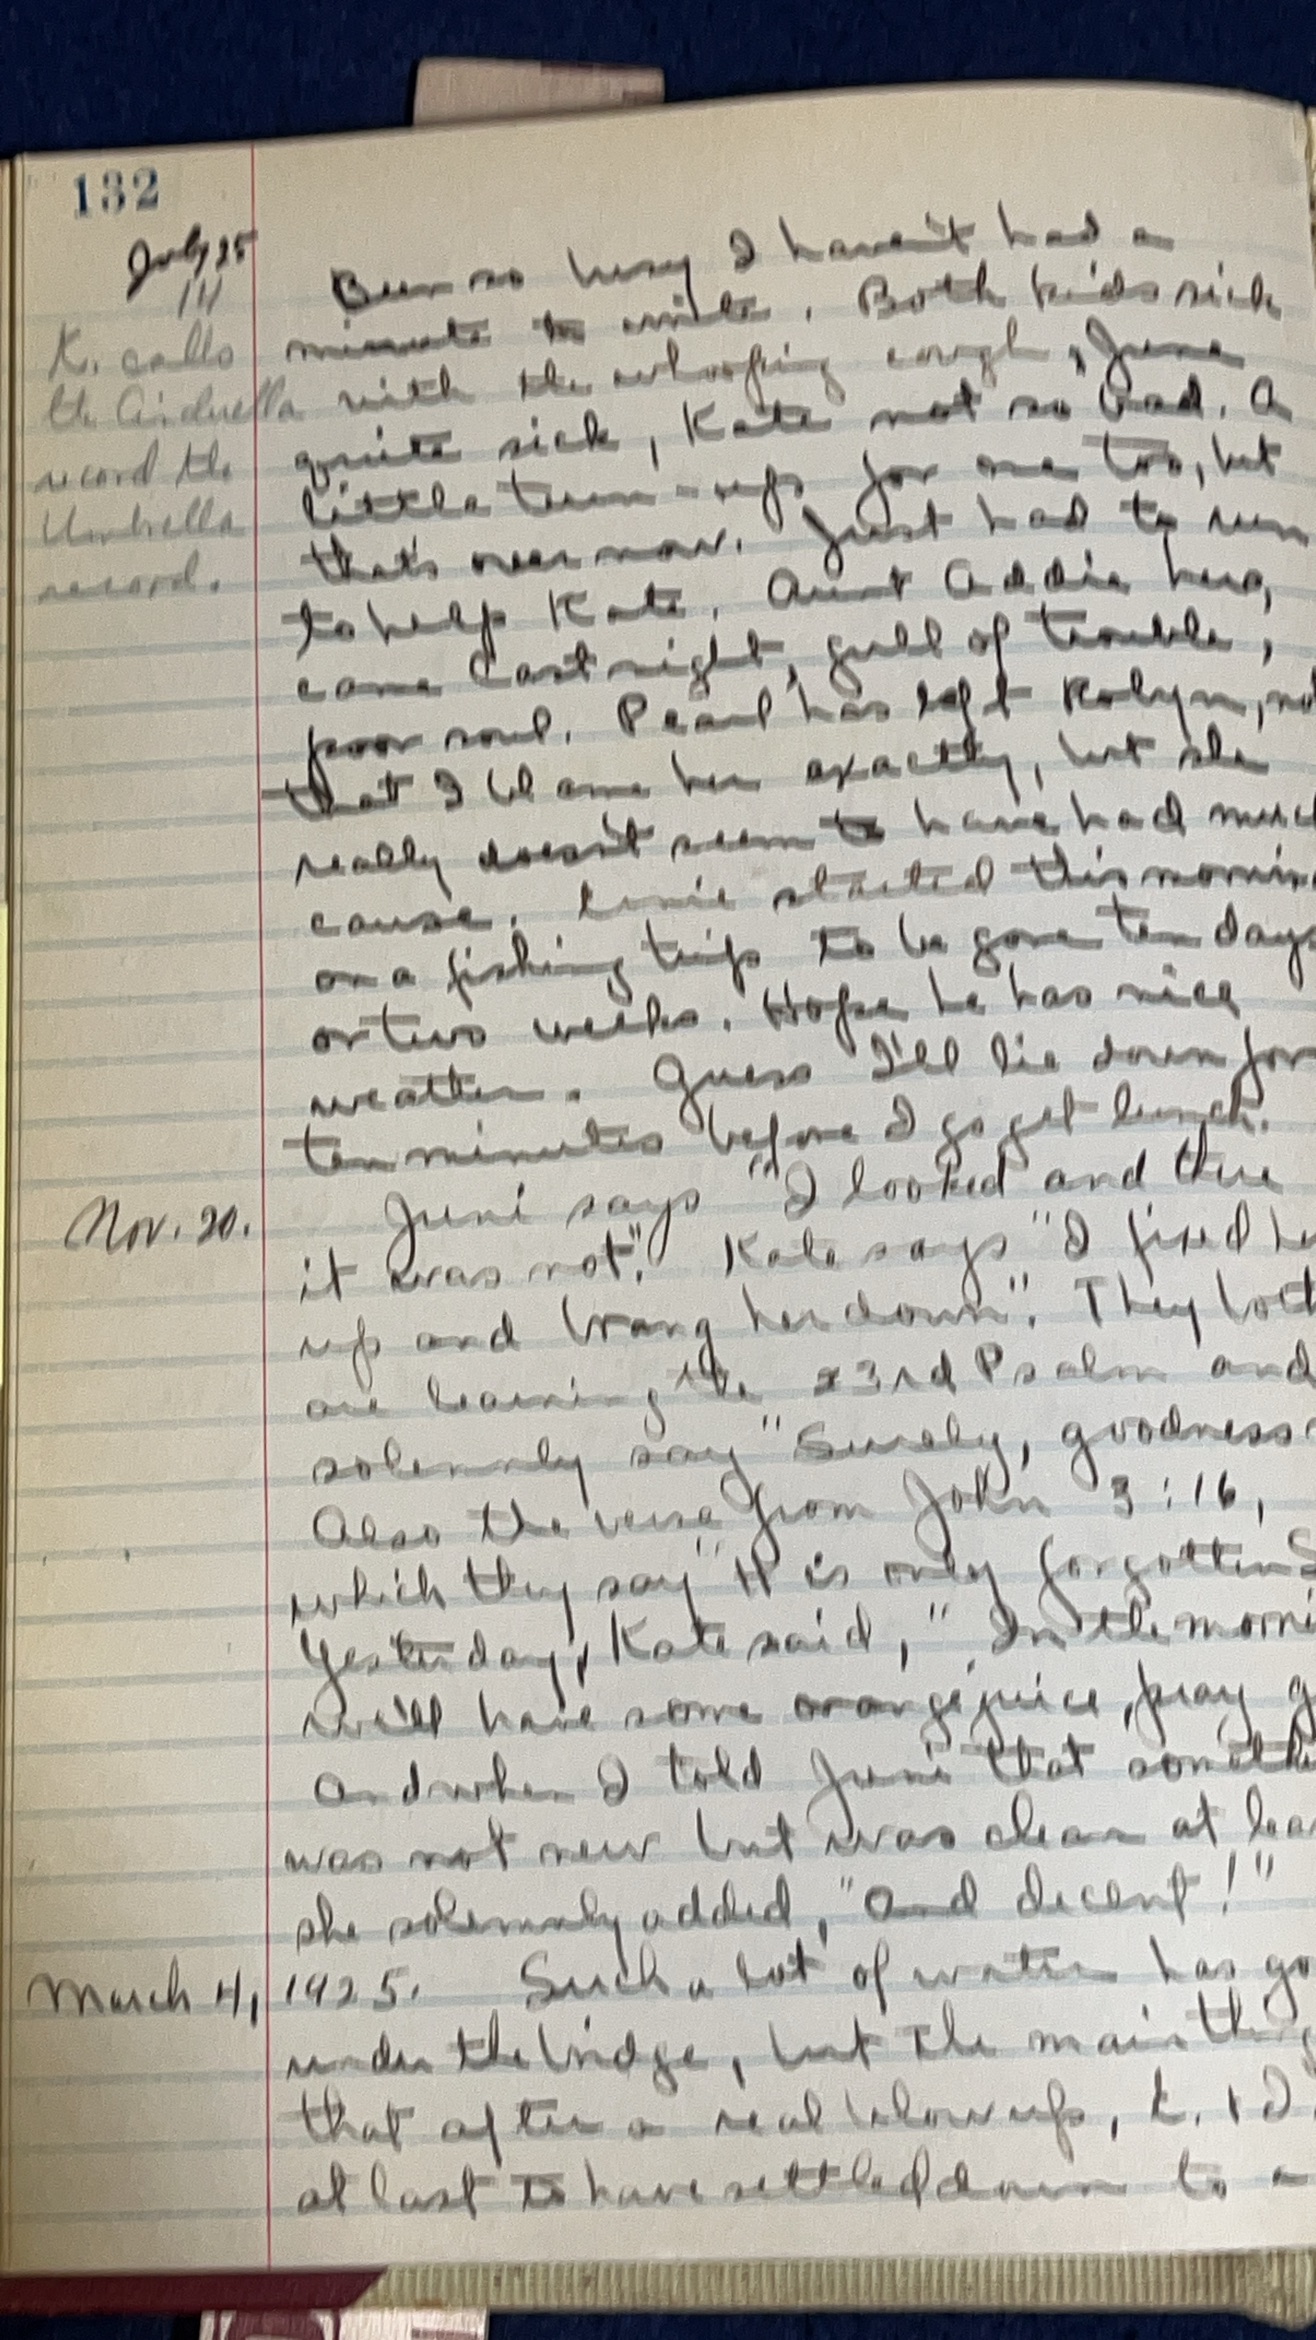 132
July 25
14
K. calls
the Cinderella
record the
Umbrella
record.
Been so busy I haven't had a
minute to write. Both kids sick
with the whooping cough, June
quite sick, Kate not so bad. A
little turn-up for me too, but
that's over now. Just had to run
to help Kate. Aunt Addie here,
came last night, full of trouble,
poor soul. Pearl has left
that I blame her exactly, but she
really doesn't seem to have had much
cause. started this morning
on a fishing trip to be gone ten days
or two weeks. Hope he has nice
weather. Guess I'll lie down for
ten minutes before I go get lunch.
Nov. 20.
Juni says "I looked and there
it was not". Kate says "I fixed her
up and brang her down". They both
are learning the 23rd Psalm and
solemnly say "Surely, goodness
Also the verse from John 3:16,
which they say "H is only forgotten S
Yesterday, Kate said, "In the morni
we'll have some orange juice, pray g
And when I told Juni that somethi
was not new but was clean at lea
she solemnly added, "And decent!"
March 4, 1925. Such a lot of water has go
under the bridge, but the main thing
that after a real blow up, L. & D.
at last to have settled down to a